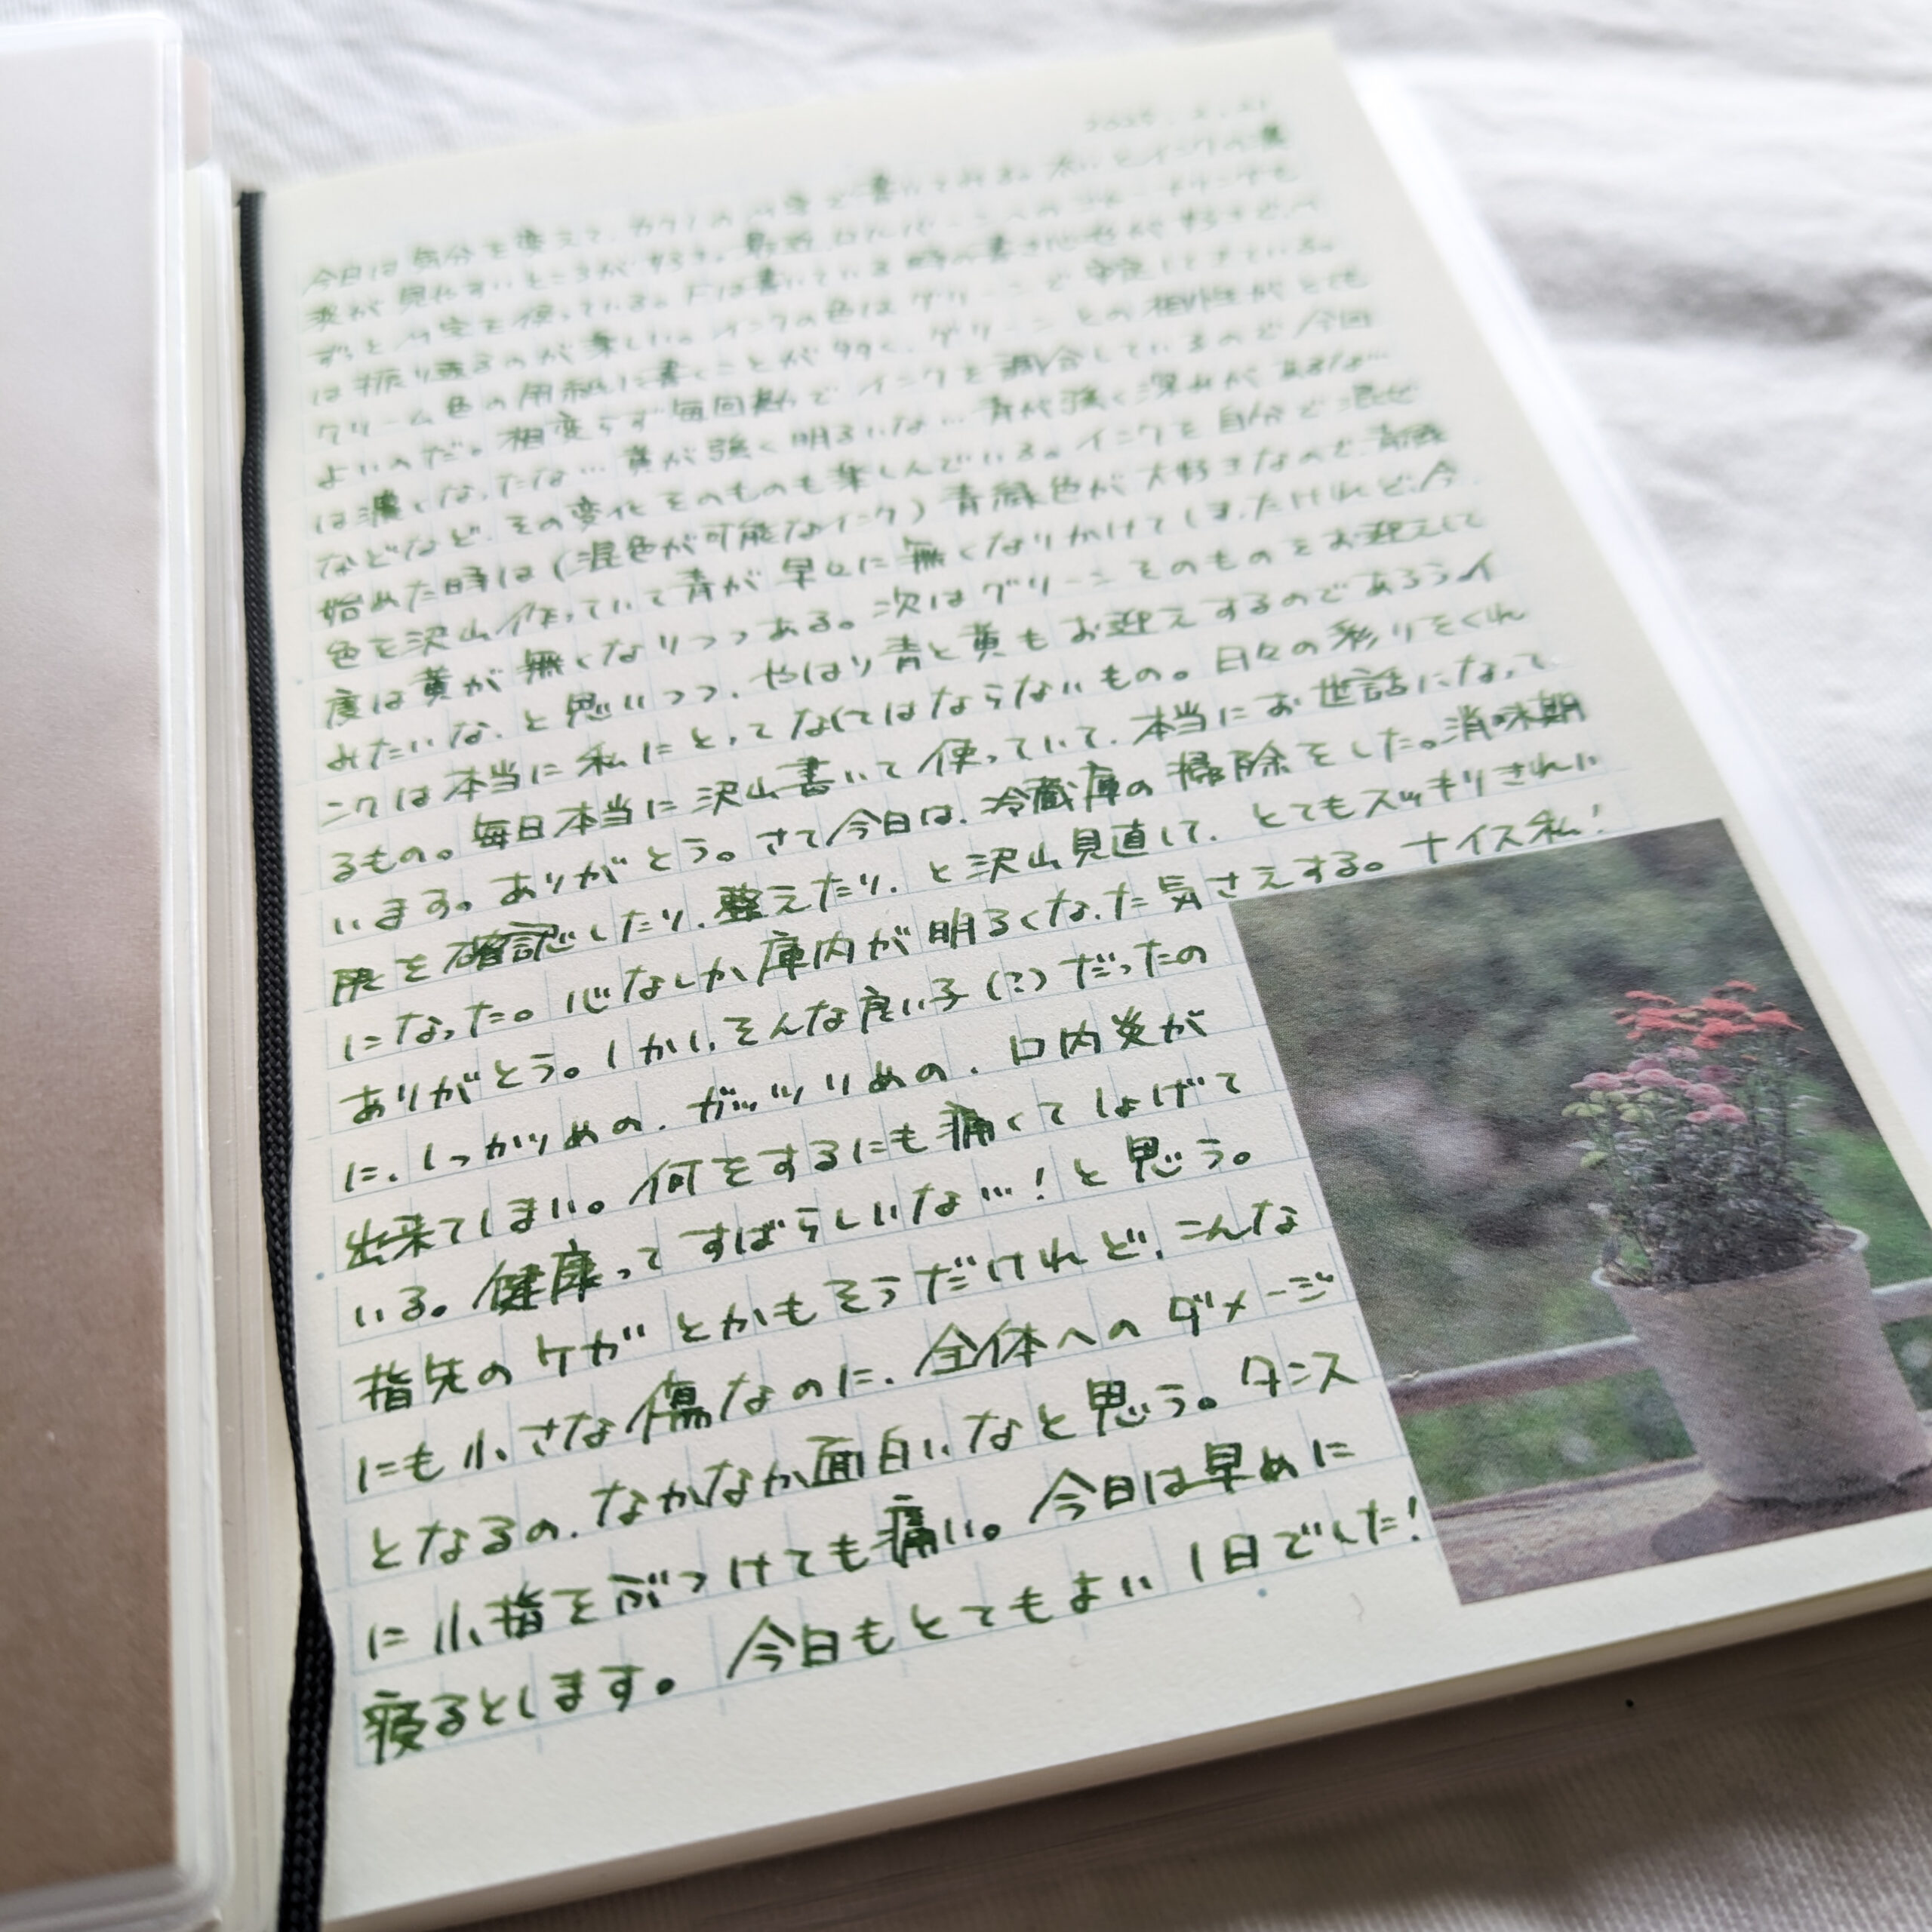 今日は気分を変えて、カクノのM字で書いてみる。太いとインクの濃
淡が見やすいところが好き。最近
ずっとM字を使っている。Fは書いている時の書き心地が好きで、M
は振り返るのが楽しい。インクの色はグリーンで安定してきている。
クリーム色の用紙に書くことが多く、グリーンとの相性がとても
よいのだ。相変らず毎回勘でインクを調合しているので今回
は濃くなったな…黄が強く明るいな…青が強く深みがあるな…
などなど、その変化そのものも楽しんでいる。インクを自分で混ぜ
始めた時は(混色が可能なインク)青緑色が大好きなので、青緑
色を沢山作っていて青が早々に無くなりかけてしまったけれど、今
度は黄が無くなりつつある。次はグリーンそのものをお迎えして
みたいな、と思いつつ、やはり青と黄もお迎えするのであろう。イ
ンクは本当に私にとってなくてはならないもの。日々の彩りをくれ
るもの。毎日本当に沢山書いて使っていて、本当にお世話になって
います。ありがとう。さて今日は、冷蔵庫の掃除をした。消味期
限を確認したり、整えたり、と沢山見直して、とてもスッキリきれい
になった。心なしか庫内が明るくなった気さえする。ナイス私!
ありがとう。しかし、そんな良い子(?)だったの
に、しっかりめの、ガッツリめの、口内炎が
出来てしまい。何をするにも痛くてしょげて
いる。健康ってすばらしいな…!と思う。
指先のケガとかもそうだけれど、こんな
にも小さな傷なのに、全体へのダメージ
となるの、なかなか面白いなと思う。タンス
に小指をぶつけても痛い。今日は早めに
寝るとします。今日もとてもよい1日でした!